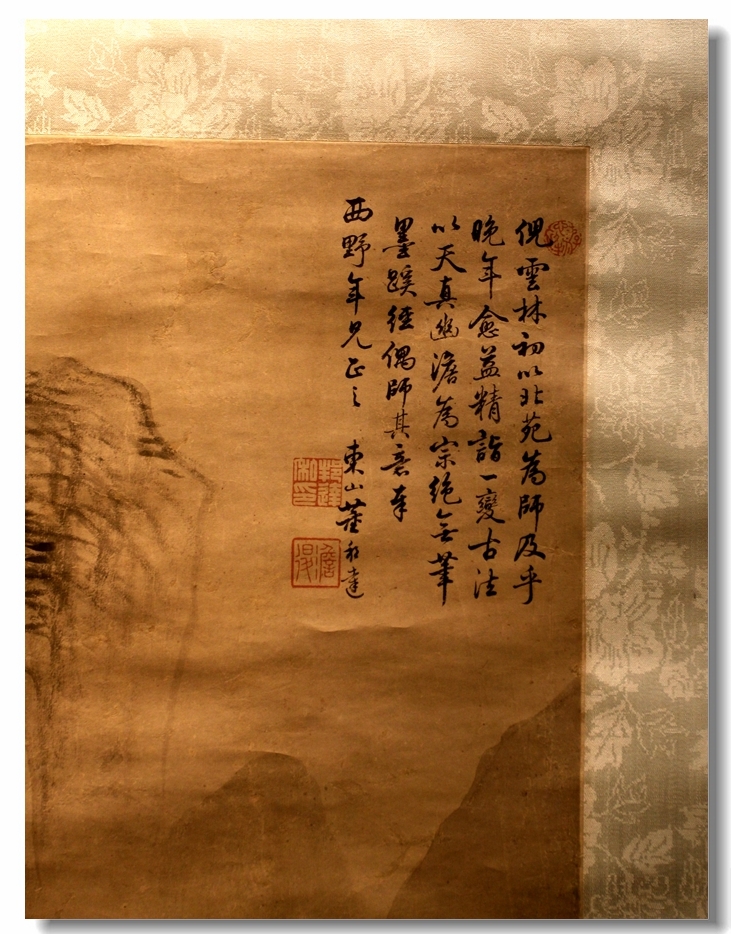 倪雲林初以北苑為師及乎
晚年愈益精詣一變古法
以天真幽澹為宗絶無筆
墨蹊徑偶師其意奉
西野年兄正之 東山董邦達